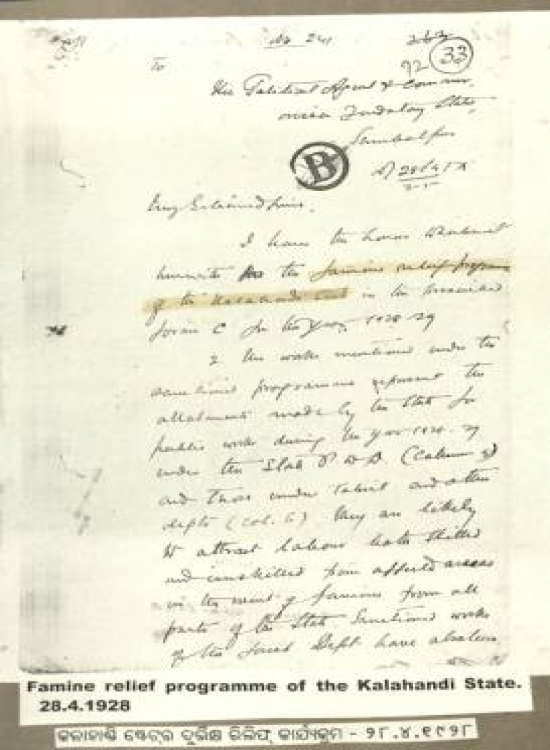 No 241
263
92 (33)
To
The Political Agent &
Orissa Feudatory States,
Sambalpur
B
My Esteemed friend,
I have the honour to submit
herewith the famine relief programme
of the Kalahandi State in the prescribed
form C for the year 1928-29
2 The works mentioned under the
sanctioned programme represent the
allotments made by the State for
public works during the year 1928-29
under the State P W D (Column 5)
and those under Tahsil and other
depts (Col. 6) They are likely
to attract labour both skilled
and unskilled from affected areas
in the event of famine from all
parts of the State Sanctioned works
of the Forest Dept have also been
Famine relief programme of the Kalahandi State.
28.4.1928
କଳାହାଣ୍ଡି ଷ୍ଟେଟ୍‌ର ଦୁର୍ଭିକ୍ଷ ରିଲିଫ୍ କାର୍ଯ୍ୟକ୍ରମ - ୨୮.୪.୧୯୨୮